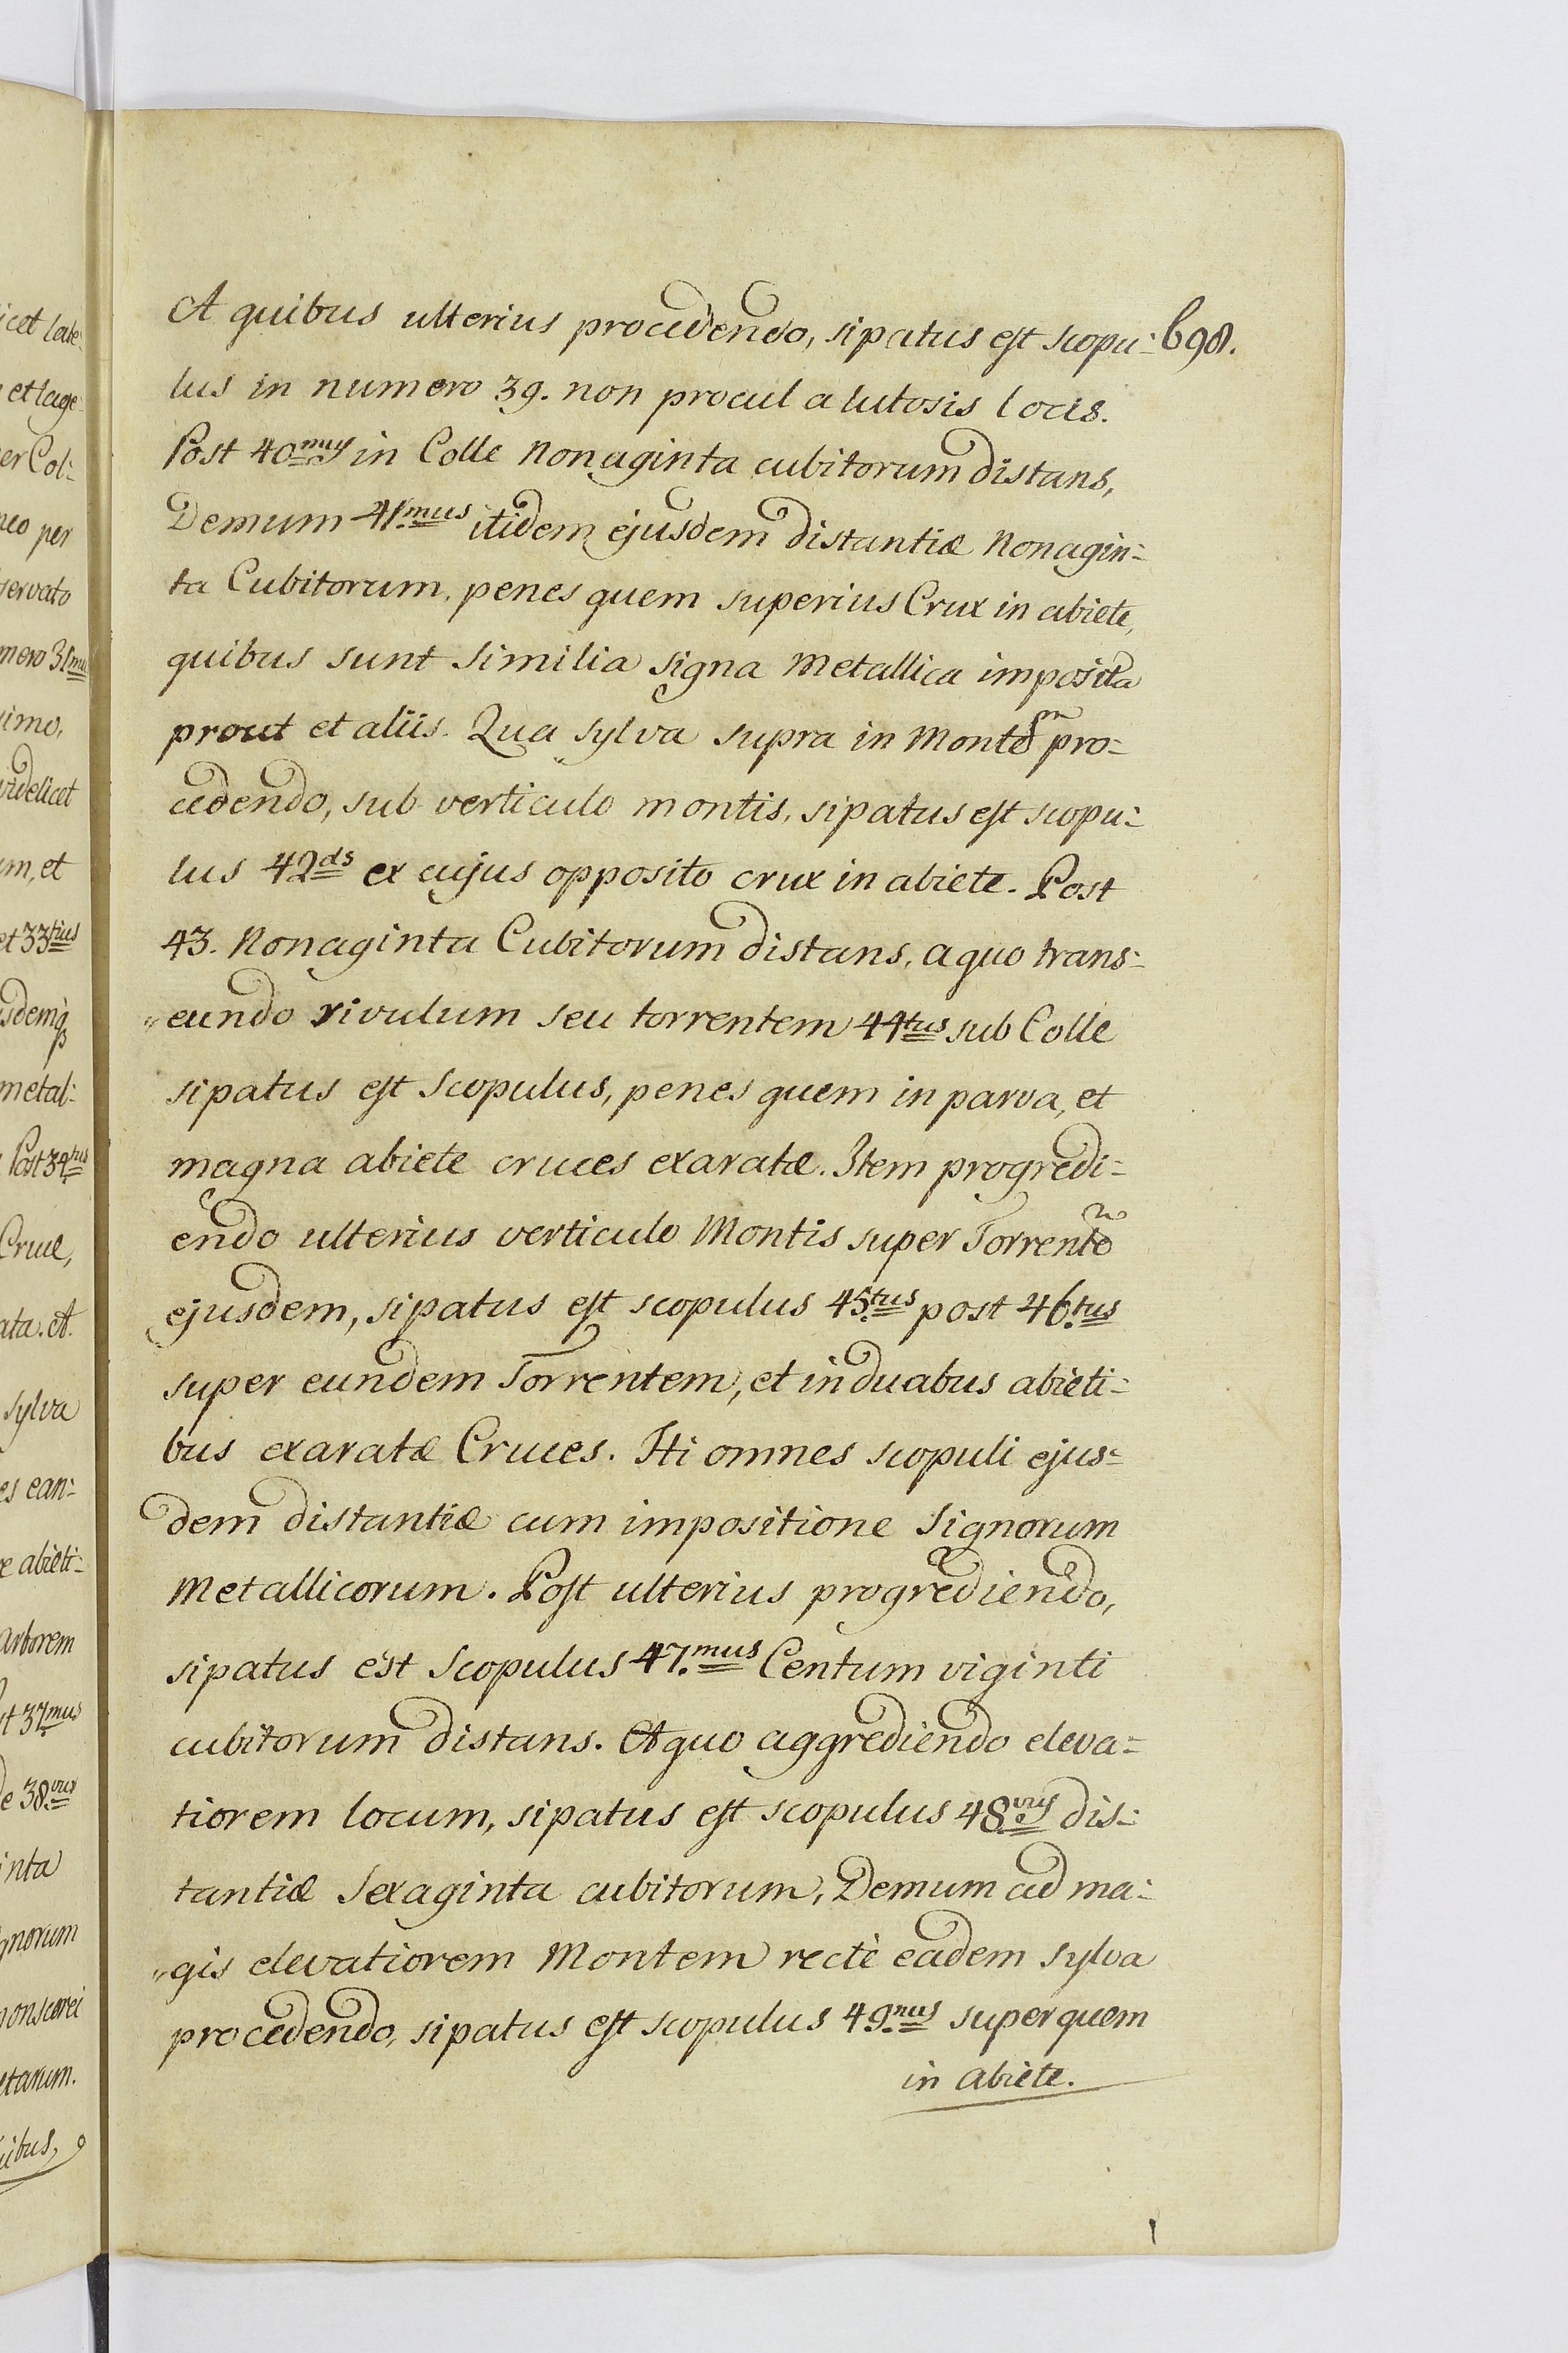 A quibus ulterius procedendo, sipatus est scopu: 698.
lus in numero 39. non procul a lutosis locis.
Post 40mus in Colle Nonaginta cubitorum distans,
Demum 41.mus itidem ejusdem distantiæ Nonagin:
ta Cubitorum, penes quem superius Crux in abiete,
quibus sunt similia signa Metallica imposita
prout et aliis. Qua sylva supra in Montem pro:
cedendo, sub verticulo montis, sipatus est scopu:
lus 42ds ex cujus opposito crux in abiete. Post
43. Nonaginta Cubitorum distans, a quo trans:
„eundo rivulum seu torrentem 44tus sub Colle
sipatus est Scopulus, penes quem in parva, et
magna abiete cruces exaratæ. Item progredi:
endo ulterius verticulo Montis super Torrentē
ejusdem, sipatus est scopulus 45.tus post 46.tus
super eundem Torrentem, et in duabus abieti:
bus exaratæ Cruces. Hi omnes scopuli ejus:
dem distantiæ cum impositione Signorum
Metallicorum. Post ulterius progrediendo,
sipatus est Scopulus 47.mus Centum viginti
cubitorum distans. A quo aggrediendo eleva:
tiorem locum, sipatus est scopulus 48vus dis:
tantiæ Sexaginta cubitorum, Demum ad ma:
„gis elevatiorem Montem rectè eadem sylva
procedendo, sipatus est scopulus 49.nus super quem
in abiete.
et
et 33tius
metal:
Post 34tus
Sylva
arborem
37mus
38.vus